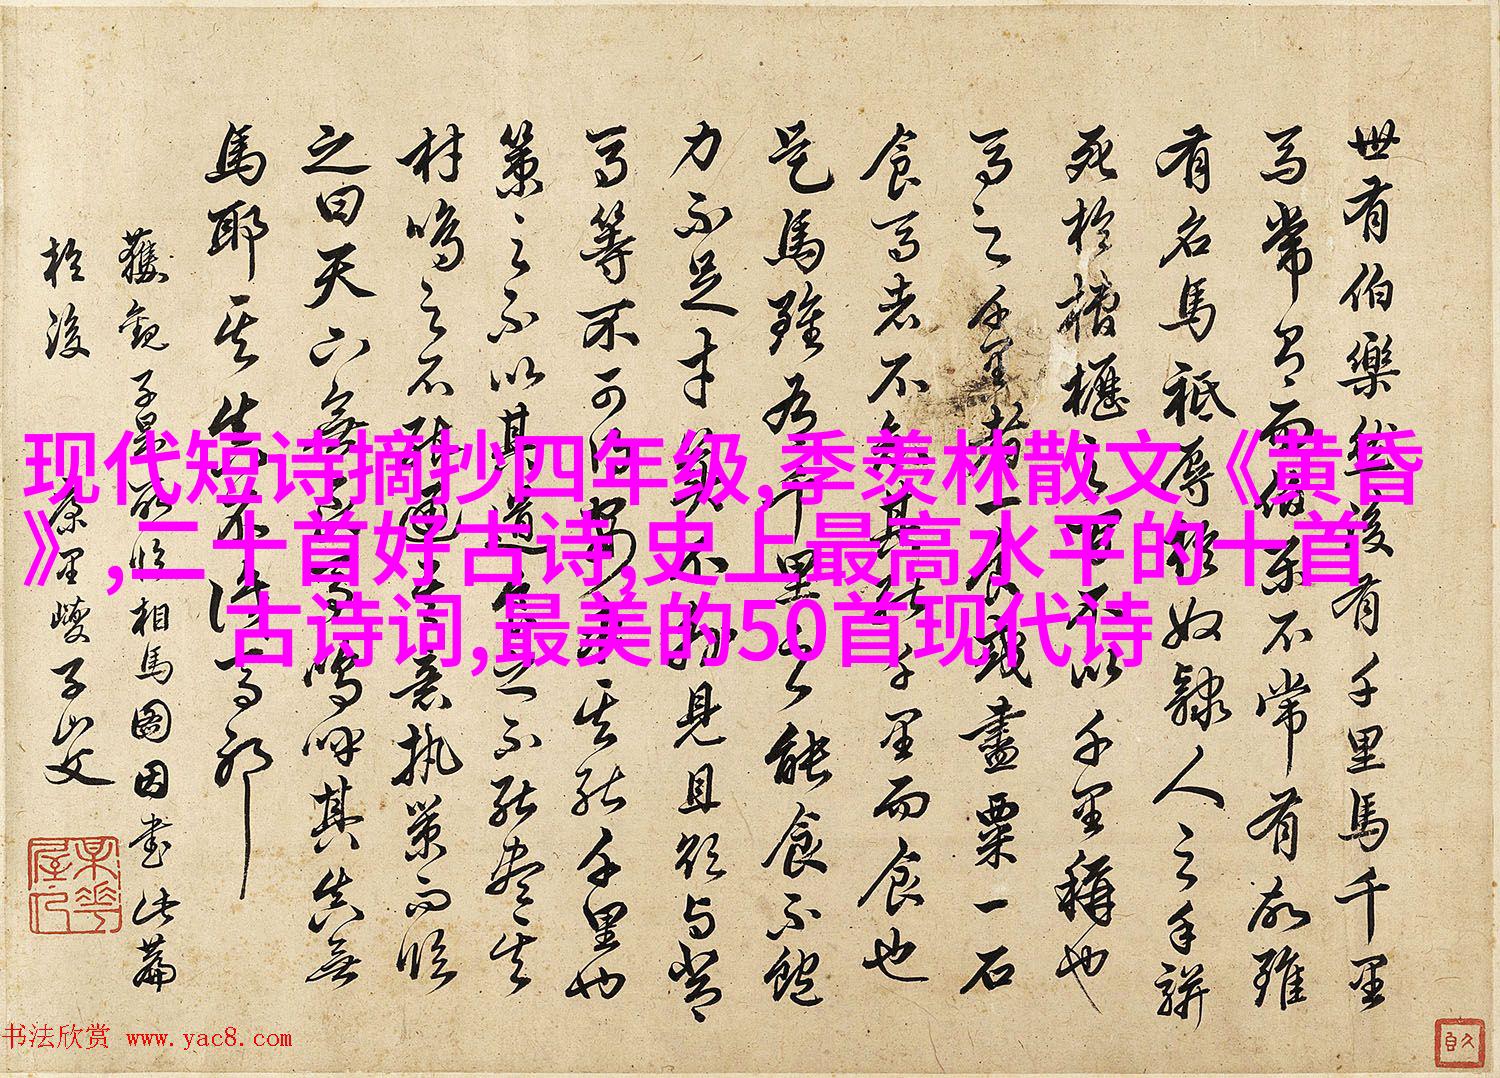 世有伯樂然後有千里馬千里
馬常有而伯樂不常有故雖
有名馬祗辱於奴隸人之手駢
死於槽櫪之間不以千里稱也
馬之千里者一食或盡粟一石
食馬者不知其能千里而食也
是馬雖有千里之能食不飽
力不足才美不外見且欲與常
馬等不可得安求其能千里也
策之不以其道食之不能盡其
材鳴之不能通其意執策而臨
之曰天下無馬嗚呼其真無
馬耶其真不識馬耶
獲觀子昂所臨相馬圖因書此篇
於後 康里巎子山父
现代短诗摘抄四年级,季羡林散文《黄昏
》,二十首好古诗,史上最高水平的十首
古诗词,最美的50首现代诗
书法欣赏 www.yac8.com